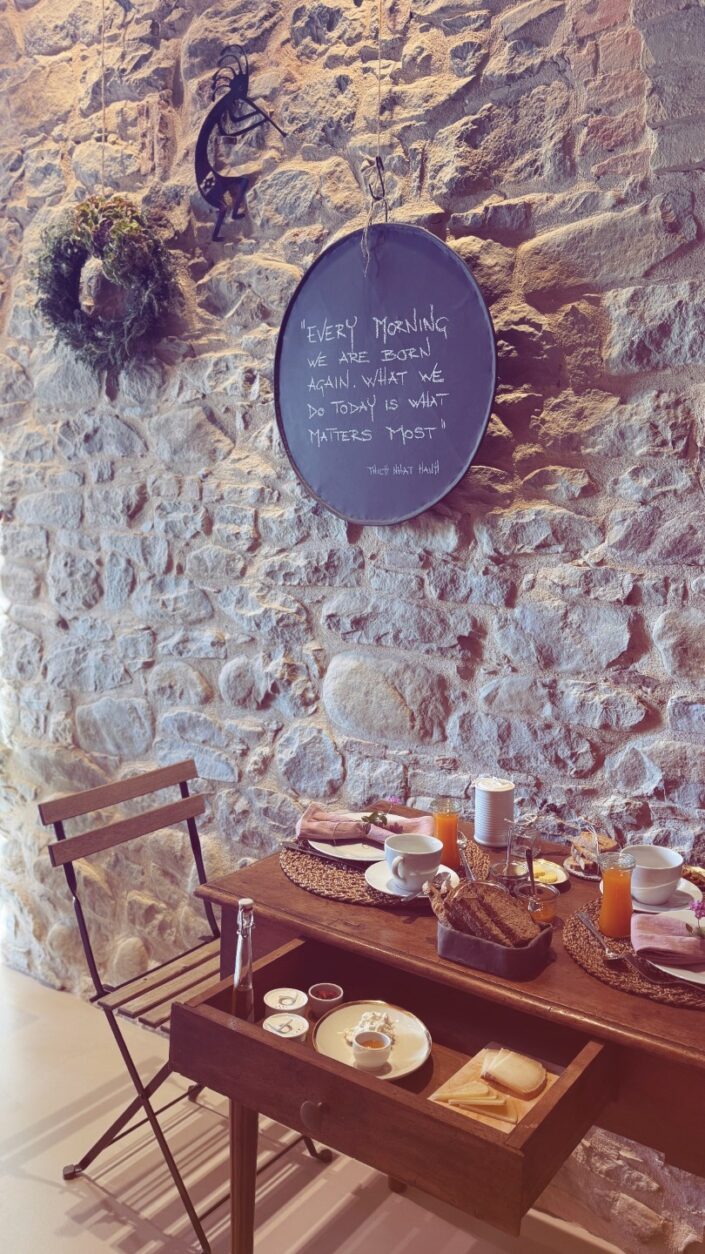 "EVERY MORNING
WE ARE BORN
AGAIN. WHAT WE
DO TODAY IS WHAT
MATTERS MOST"
THICH NHAT HANH